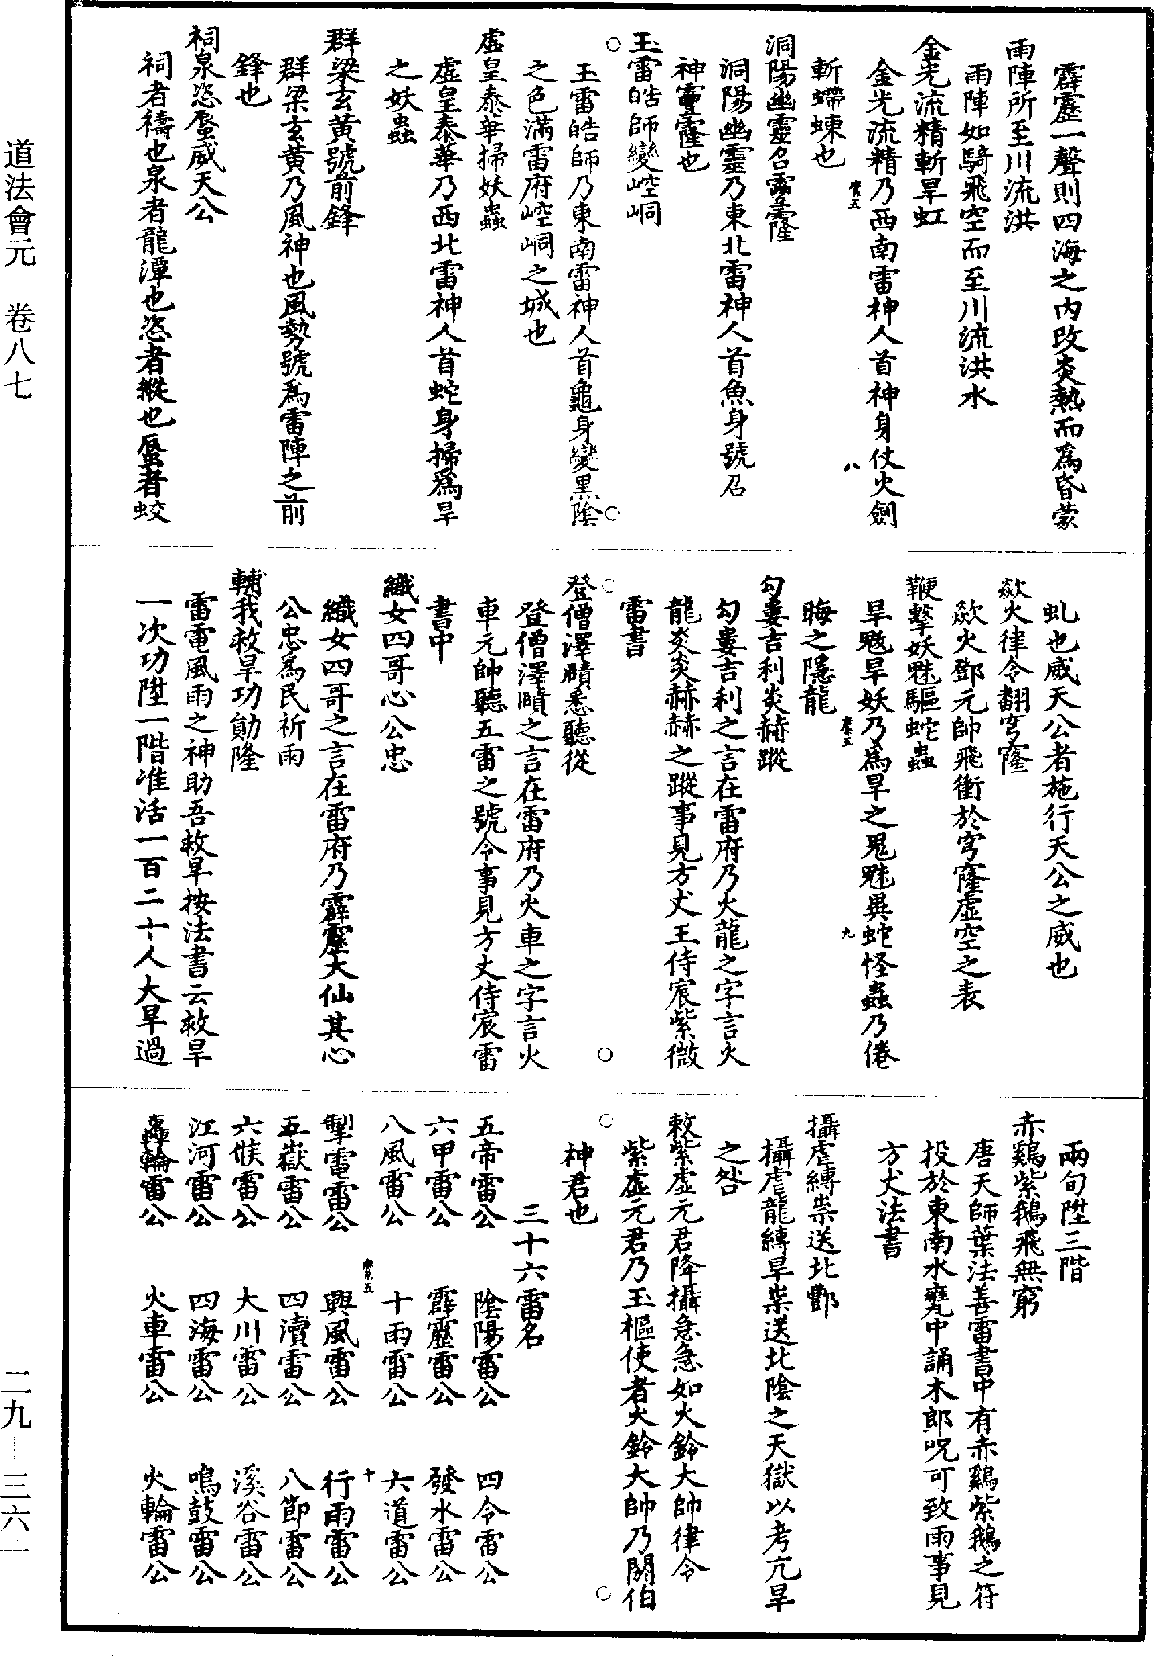 道法會元　卷八七
霹靂一聲則四海之內改炎熱而爲昏蒙
雨陣所至川流洪
雨陣如騎飛空而至川流洪水
金光流精斬旱虹
金光流精乃西南雷神人首神身仗火劍
斬螮蝀也
洞陽幽靈召雷霳
洞陽幽靈乃東北雷神人首魚身號召
神雷霳也
玉雷皓師變崆峒
玉雷皓師乃東南雷神人首龜身變黑陰
之色滿雷府崆峒之城也
虛皇泰華掃妖蟲
虛皇泰華乃西北雷神人首蛇身掃爲旱
之妖蟲
群梁玄黃號前鋒
群梁玄黃乃風神也風勢號爲雷陣之前
鋒也
祠泉恣蜃威天公
祠者禱也泉者龍潭也恣者縱也蜃者蛟
虬也威天公者施行天公之威也
歘火律令翻穹窿
歘火鄧元帥飛衝於穹窿虛空之表
鞭擊妖魅驅蛇蟲
旱魃旱妖乃爲旱之鬼魅異蛇怪蟲乃倦
晦之隱龍
勾婁吉利炎赫蹤
勾婁吉利之言在雷府乃火龍之字言火
龍炎炎赫赫之蹤事見方丈王侍宸紫微
雷書
登僧澤賾悉聽從
登僧澤賾之言在雷府乃火車之字言火
車元帥聽五雷之號令事見方丈侍宸雷
書中
織女四哥心公忠
織女四哥之言在雷府乃霹靂大仙其心
公忠爲民祈雨
輔我救旱功勛隆
雷電風雨之神助吾救旱按法書云救旱
一次功陞一階准活一百二十人大旱過
兩旬陞三階
赤鷄紫鵝飛無窮
唐天師葉法善雷書中有赤鷄紫鵝之符
投於東南水甕中誦木郎呪可致雨事見
方丈法書
攝虐縛祟送北酆
攝虐龍縛旱祟送北陰之天獄以考亢旱
之咎
敕紫虛元君降攝急急如火鈴大帥律令
紫虛元君乃玉樞使者火鈴大帥乃閼伯
神君也
三十六雷名
五帝雷公　陰陽雷公　四令雷公
六甲雷公　霹靂雷公　發水雷公
八風雷公　十雨雷公　六道雷公
掣雷雷公　興風雷公　行雨雷公
五嶽雷公　四瀆雷公　八節雷公
六候雷公　大川雷公　溪谷雷公
江河雷公　四海雷公　鳴鼓雷公
轟輪雷公　火車雷公　火輪雷公
二九—三六一